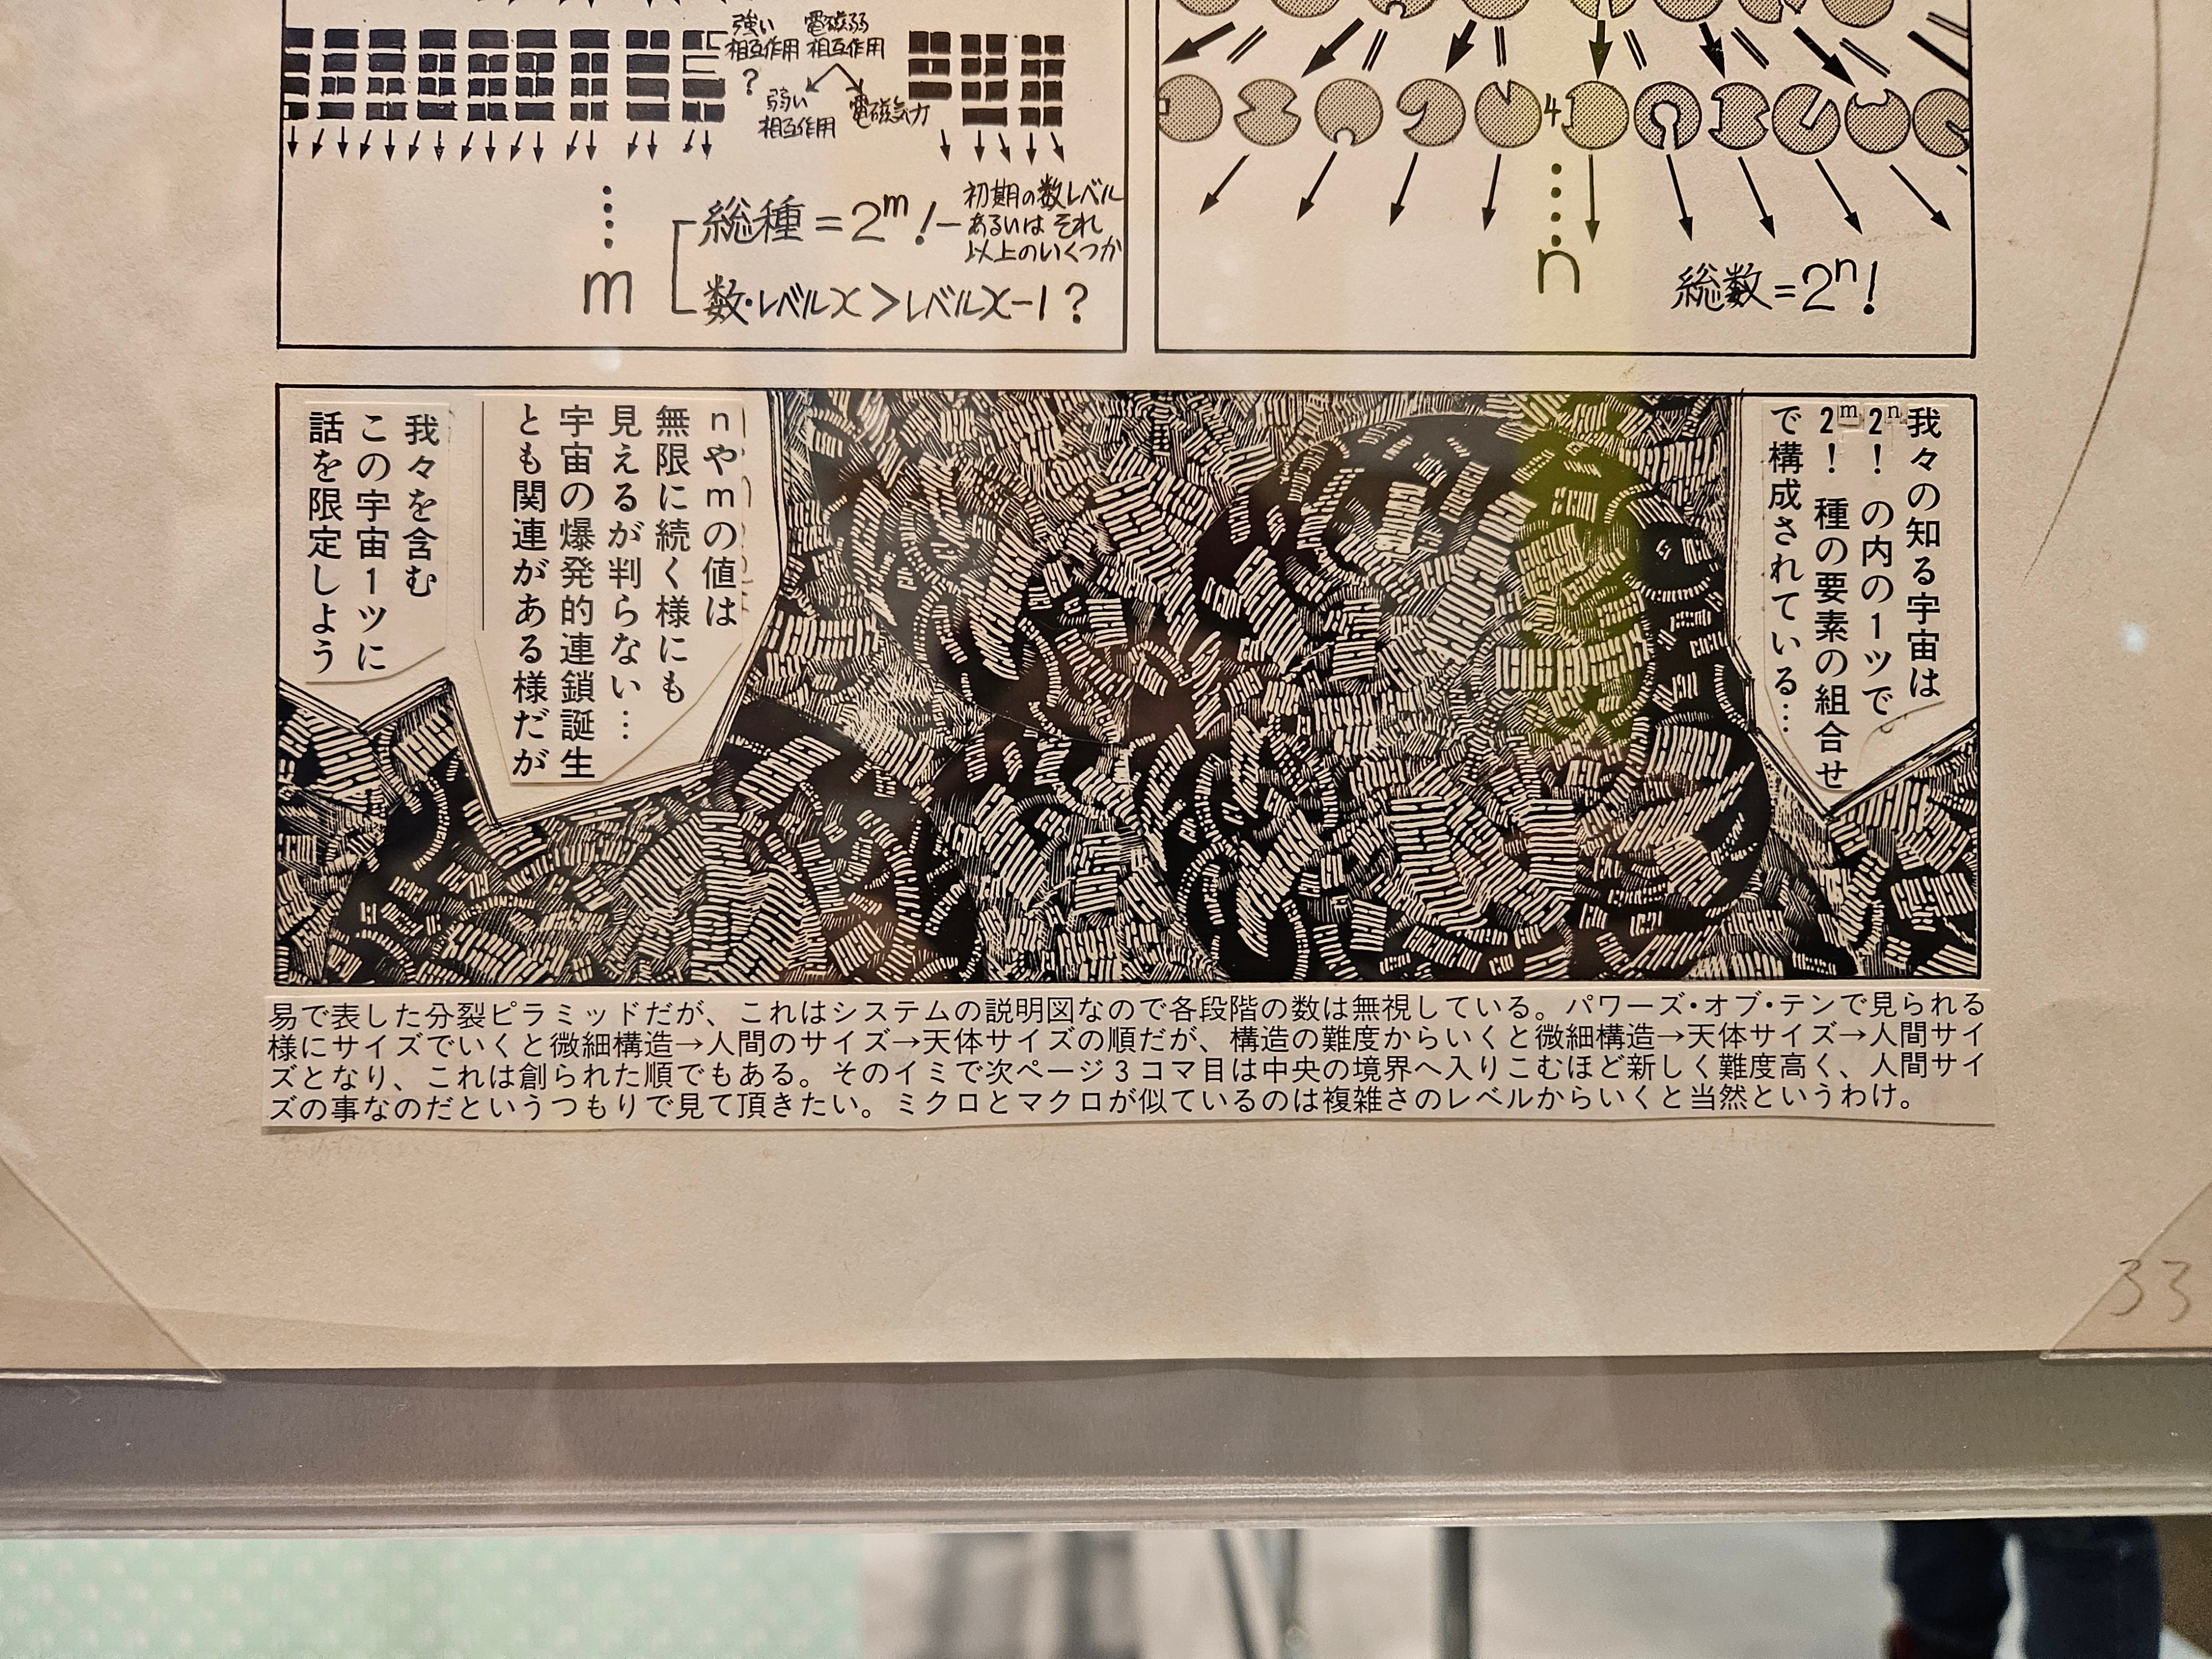 総数=2ⁿ!
4
n
強い
相互作用
電磁弱
相互作用
?
弱い
相互作用
電磁気力
m
総種=2ᵐ!
初期の数レベル
あるいは それ
以上のいくつか
数・レベルx>レベルx-1?
我々の知る宇宙は
2ⁿ! の内の1ツで
2ᵐ! 種の要素の組合せ
で構成されている…
nやmの値は
無限に続く様にも
見えるが判らない…
宇宙の爆発的連鎖誕生
とも関連がある様だが
我々を含む
この宇宙1ツに
話を限定しよう
易で表した分裂ピラミッドだが、これはシステムの説明図なので各段階の数は無視している。パワーズ・オブ・テンで見られる
様にサイズでいくと微細構造→人間のサイズ→天体サイズの順だが、構造の難度からいくと微細構造→天体サイズ→人間サイ
ズとなり、これは創られた順でもある。そのイミで次ページ3コマ目は中央の境界へ入りこむほど新しく難度高く、人間サイ
ズの事なのだというつもりで見て頂きたい。ミクロとマクロが似ているのは複雑さのレベルからいくと当然というわけ。
33